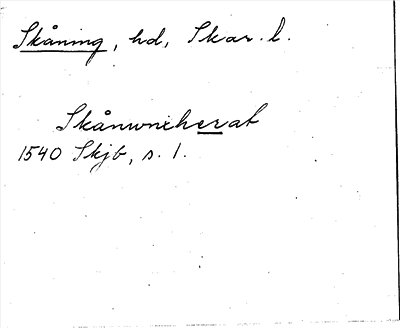 Skåning, hd, Skar. l.
Skånwneherat
1540 Skjb, s. 1.